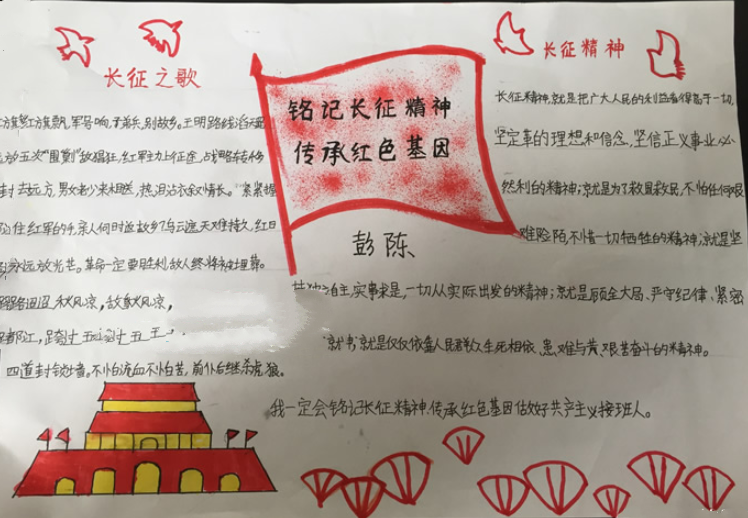 长征之歌
红旗飘,军号响,子弟兵,别故乡。王明路线滔天罪,
五次"围剿"敌猖狂,红军主力上征途,战略转移
去远方,男女老少来相送,热泪沾衣叙情长。紧紧握
住红军的手,亲人何时返故乡?乌云遮天难持久,红日
永远放光芒。革命一定要胜利,敌人终将被埋葬。
路迢迢,秋风凉,敌 秋风凉,
都江,跨
四道封锁墙。不怕流血不怕苦,前仆后继杀虎狼。
铭记长征精神
传承红色基因
彭陈
长征精神
长征精神,就是把广大人民的利益看得高于一切,
坚定革的理想和信念,坚信正义事业必
然利的精神;就是为了救国救民,不怕任何艰
难险 不惜一切牺牲的精神;就是坚
自主,实事求是,一切从实际出发的精神;就是顾全大局、严守纪律、紧密
就 就是仅仅依靠人民群众生死相依、患难与 、艰苦奋斗的精神。
我一定会铭记长征精神,传承红色基因做好共产主义接班人。